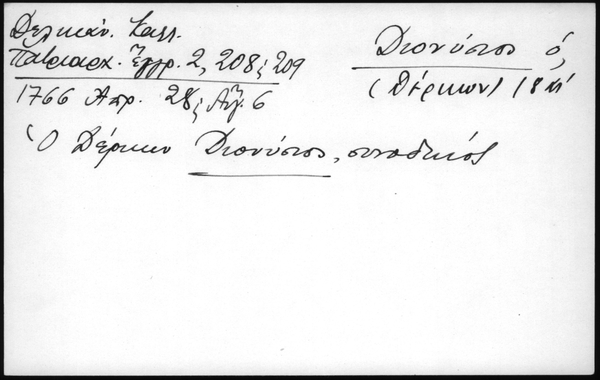 Δελικάν. Καλλ.
Πατριαρχ. Ἔγγρ. 2, 208; 209
1766 Απρ. 28; Αὔγ. 6
Διονύσιος ὁ,
(Δέρκων) 18
Ὁ Δέρκων Διονύσιος, συνοδικός